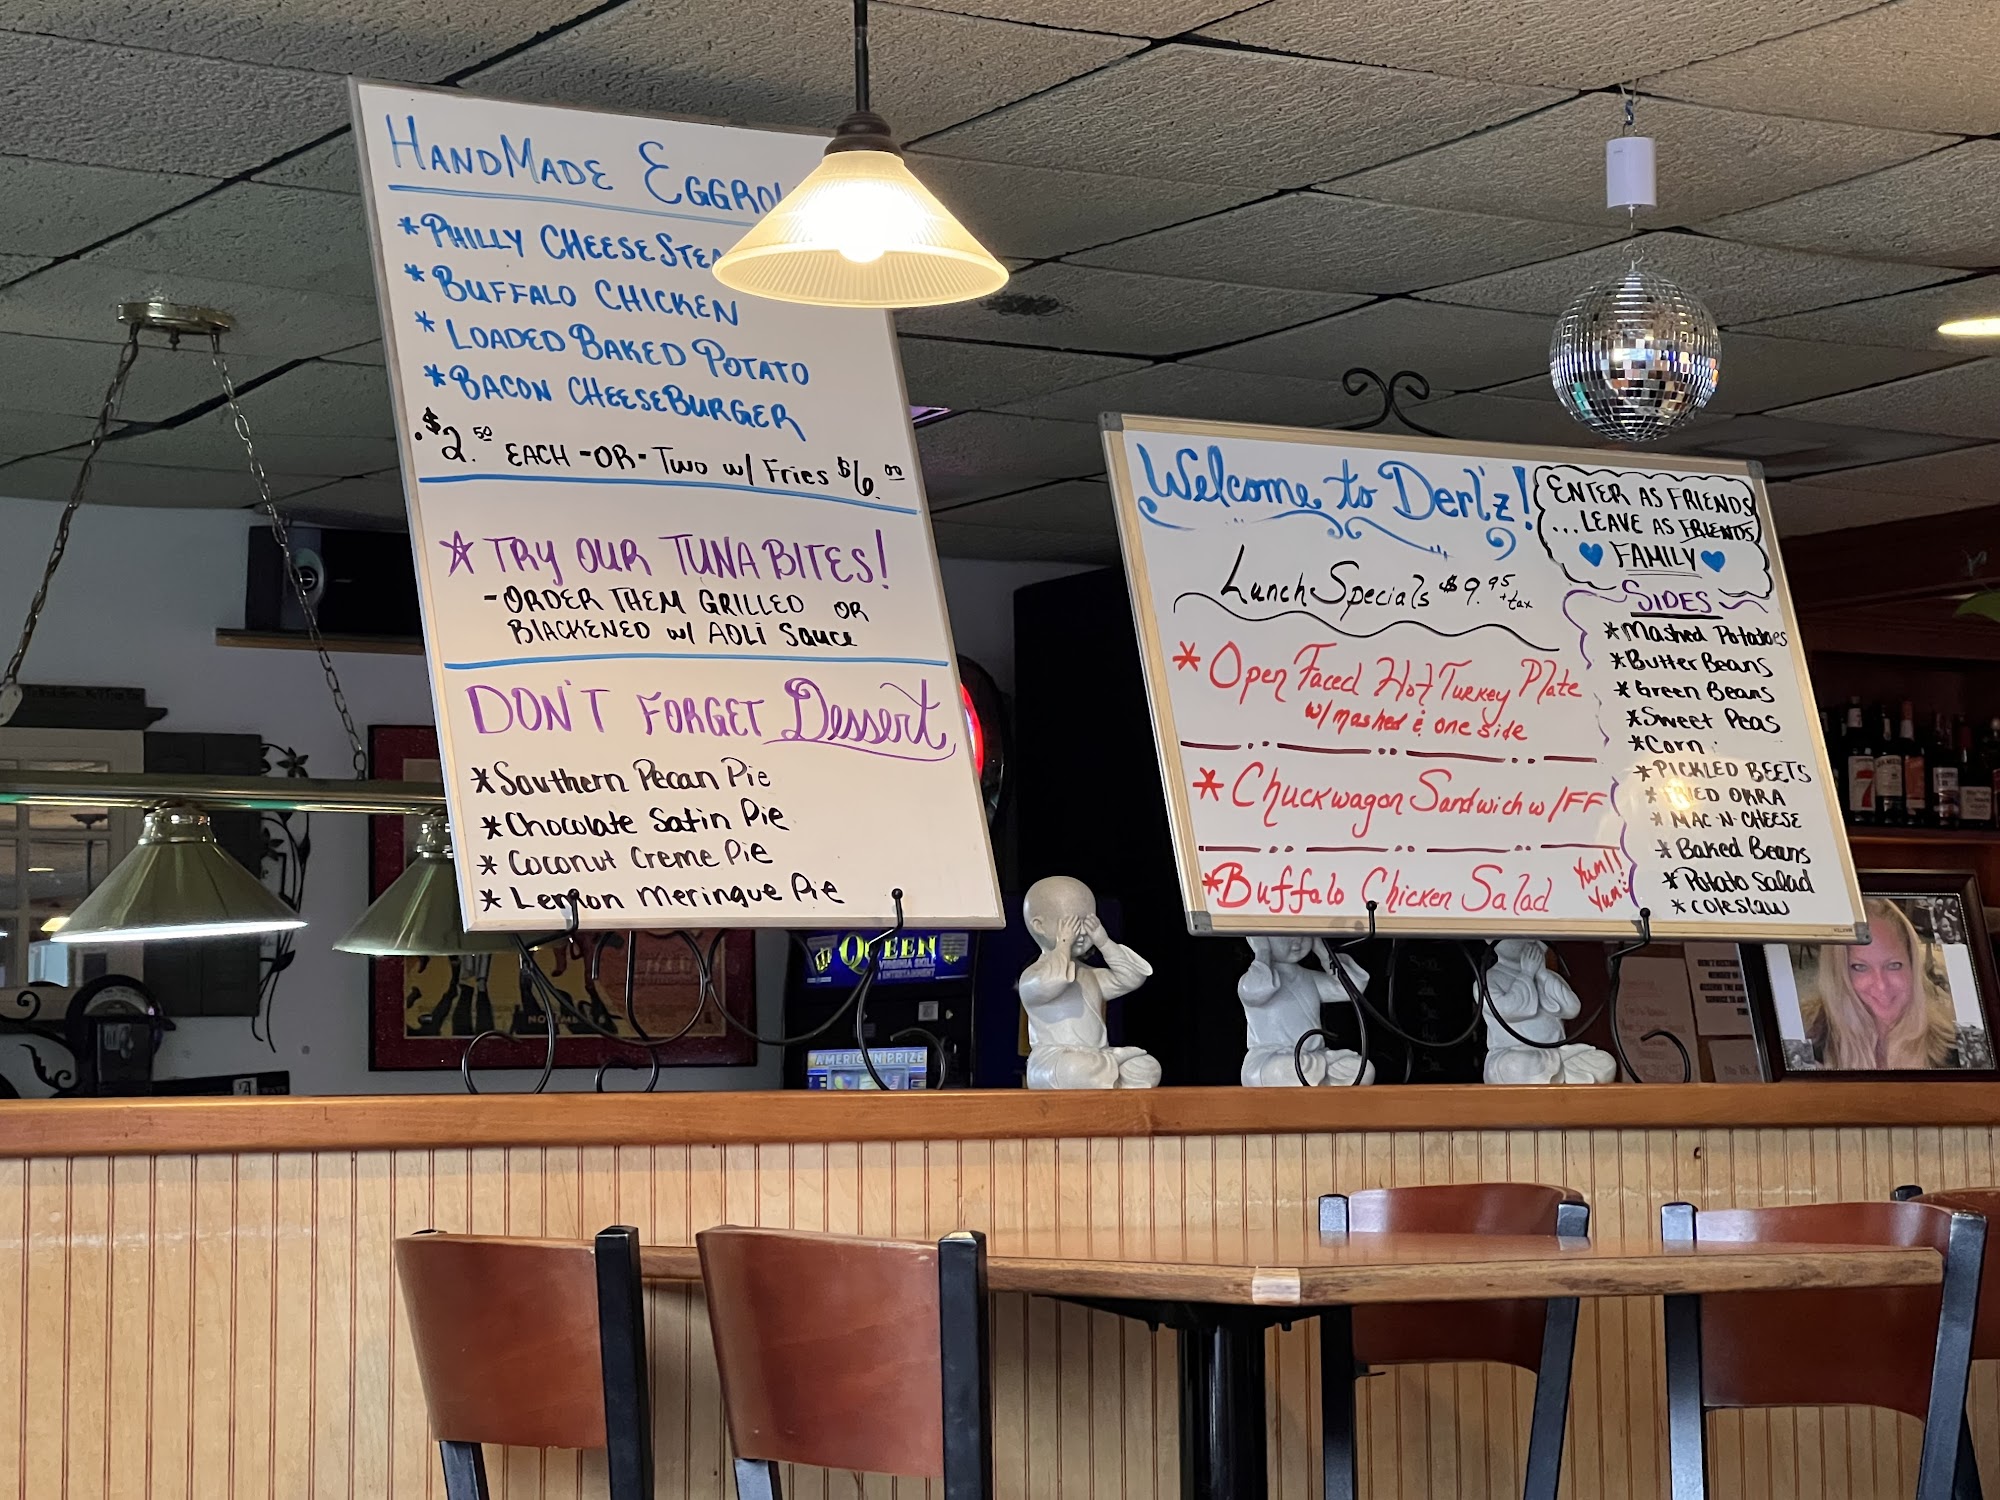 HANDMADE EGGROL
* PHILLY CHEESESTEA
* BUFFALO CHICKEN
* LOADED BAKED POTATO
* BACON CHEESEBURGER
$2.50 EACH -OR- Two w/ Fries $6.00
☆ TRY OUR TUNA BITES!
- ORDER THEM GRILLED OR
BLACKENED w/ AOLi Sauce
DON'T FORGET Dessert
* Southern Pecan Pie
* Chocolate Satin Pie
* Coconut Creme Pie
* Lemon Meringue Pie
Welcome to Derl'z!
ENTER AS FRIENDS
...LEAVE AS FRIENDS
FAMILY
Lunch Specials $9.95 + tax
* Open Faced Hot Turkey Plate
w/ mashed & one side
* Chuckwagon Sandwich w/FF
* Buffalo Chicken Salad
Yum!!
Yum
SIDES
* Mashed Potatoes
* Butter Beans
* Green Beans
* Sweet Peas
* Corn
* PICKLED BEETS
* FRIED OKRA
* MAC-N-CHEESE
* Baked Beans
* Potato Salad
* Coleslaw
QUEEN
VIRGINIA SKILL
& ENTERTAINMENT
AMERICAN PRIZE